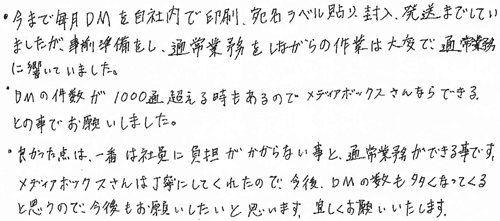 ・今まで毎月DMを自社内で印刷、宛名ラベル貼り、封入、発送までしてい
ましたが、事前準備をし、通常業務をしながらの作業は大変で通常業務
に響いていました。
・DMの件数が1000通超える時もあるのでメディアボックスさんならできる
との事でお願いしました。
・良かった点は、一番は社員に負担がかからない事と、通常業務ができる事です。
メディアボックスさんは丁寧にしてくれたので今後、DMの数も多くなってくる
と思うので今後もお願いしたいと思います。宜しくお願いいたします。